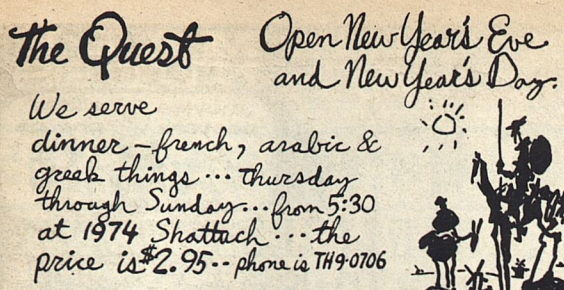 The Quest
Open New Year's Eve
and New Year's Day.
We serve
dinner – french, arabic &
greek things ... thursday
through Sunday... from 5:30
at 1974 Shattuck ... the
price is $2.95 -- phone is TH9-0706